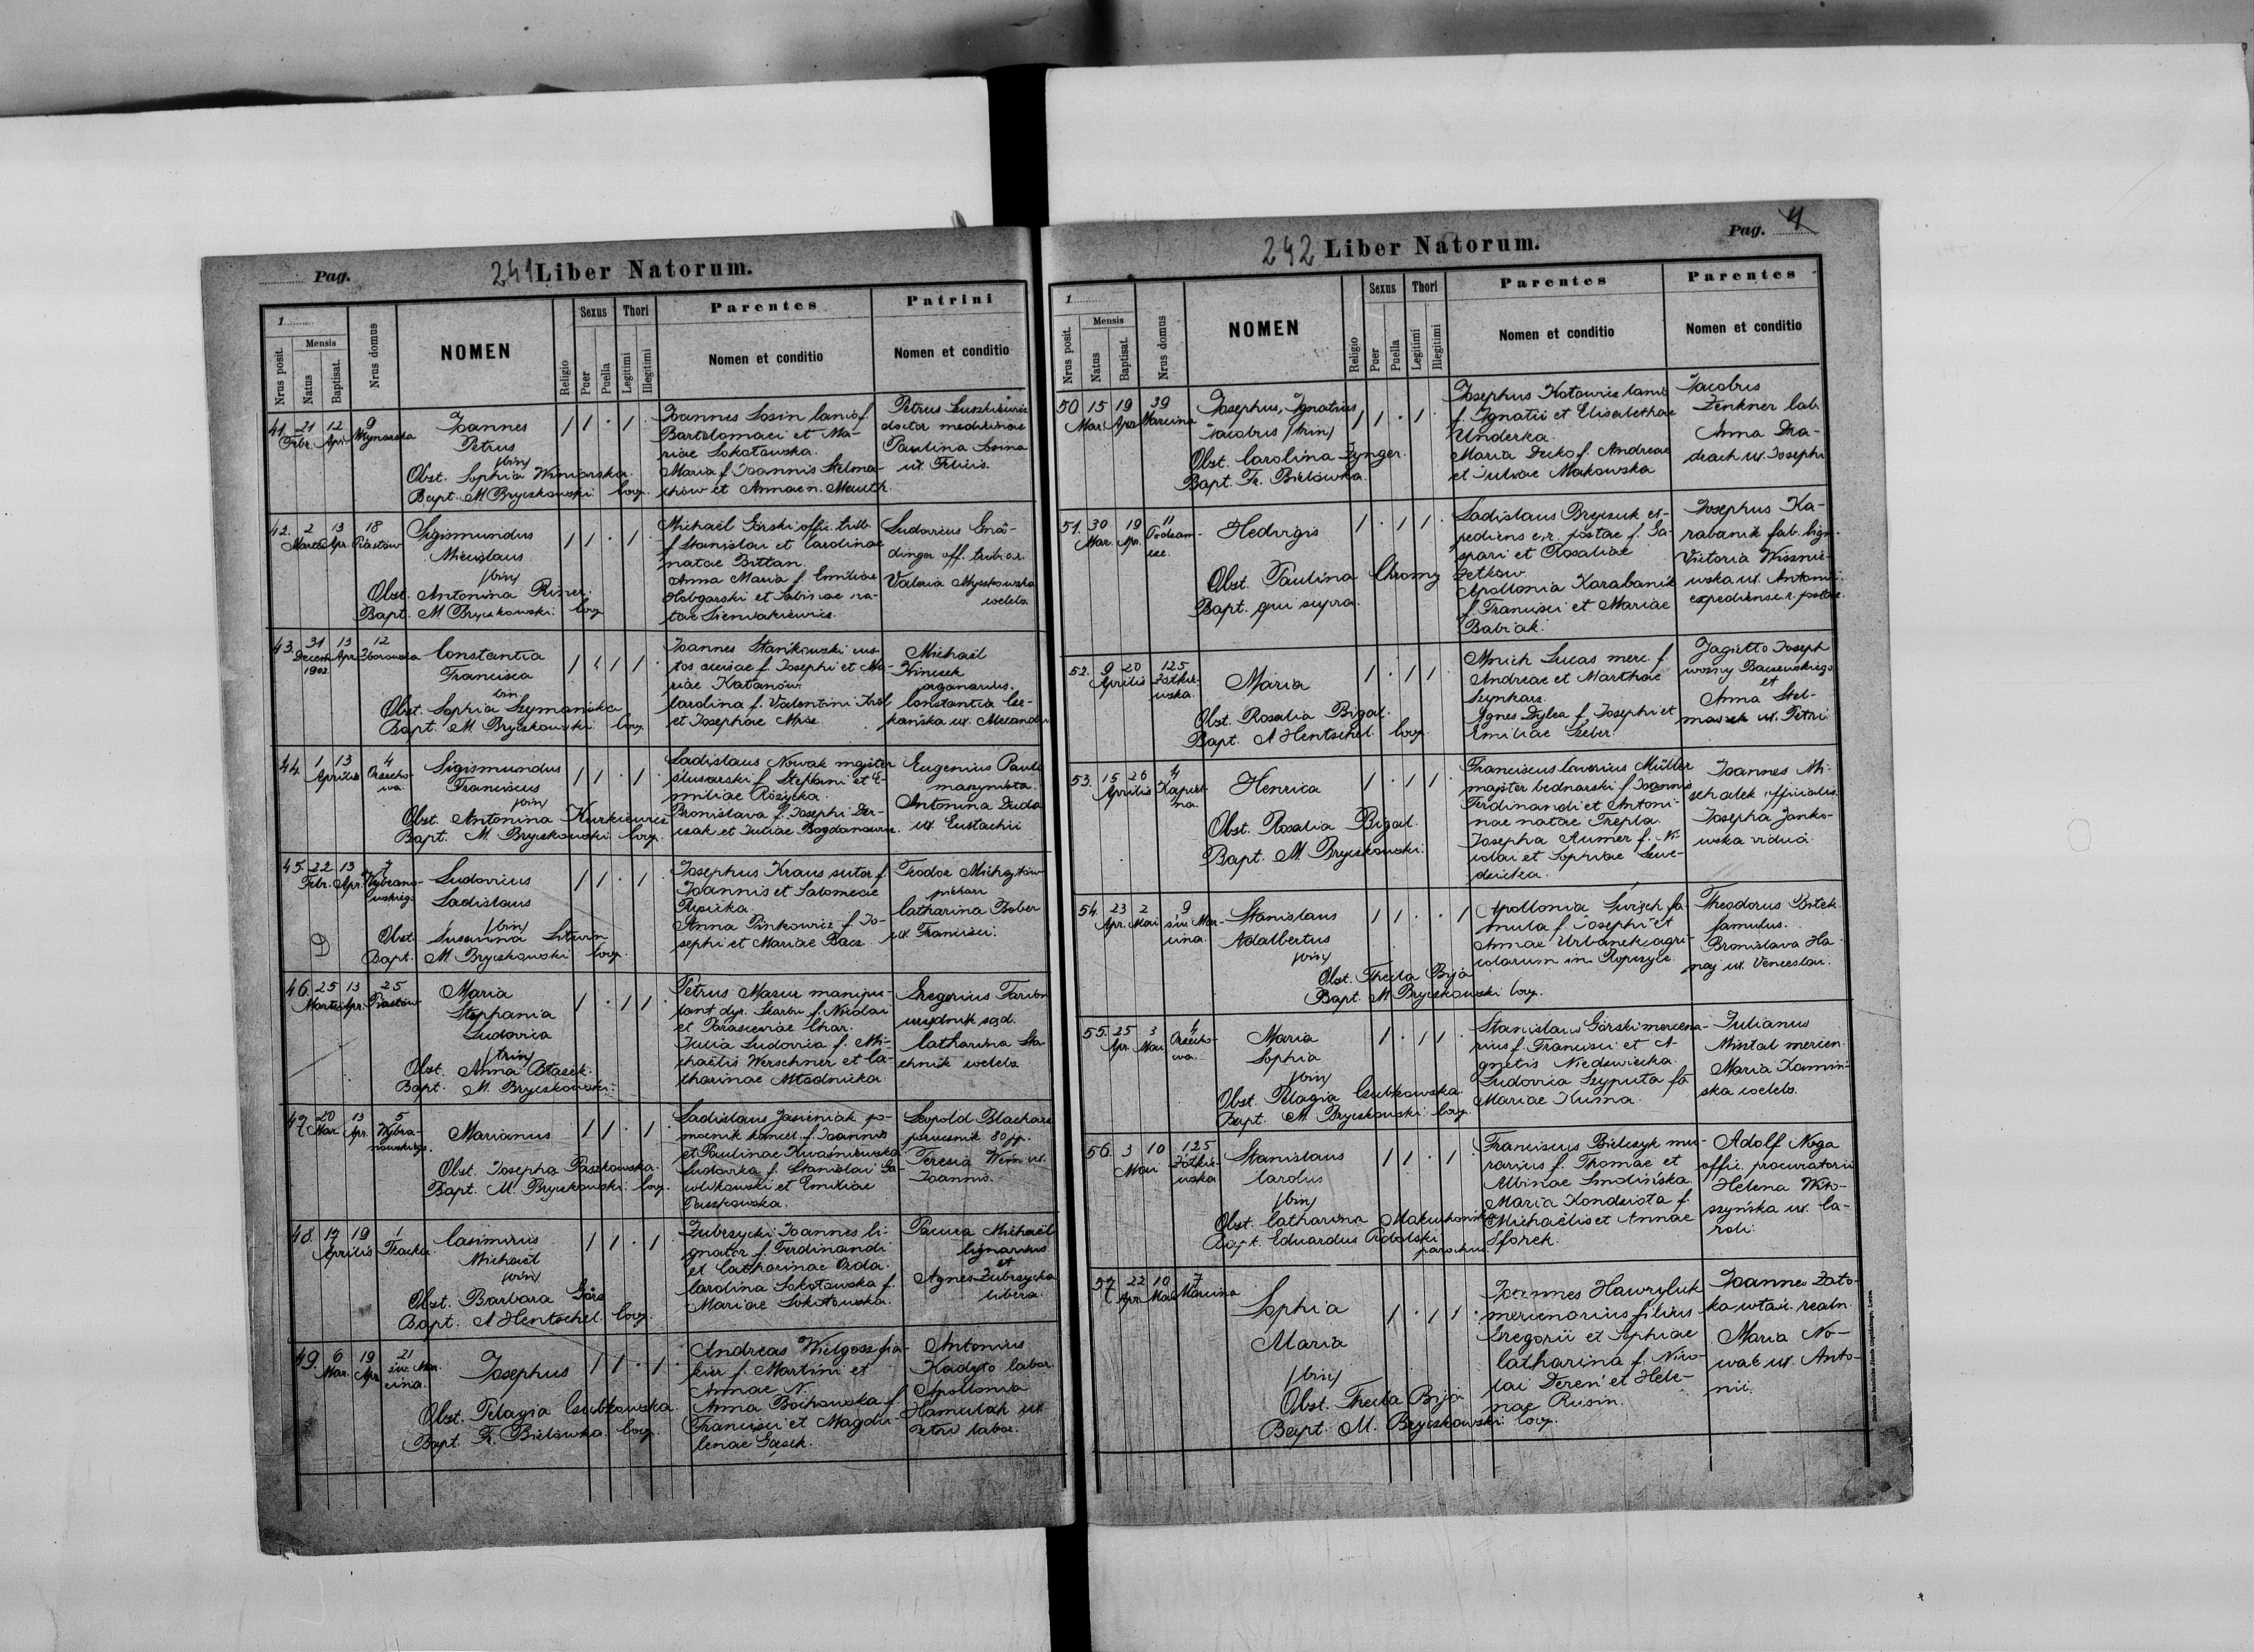 Pag.
241 Liber Natorum.
1
Mensis
Nrus posit.
Natus
Baptisat.
Nrus domus
NOMEN
Religio
Sexus
Puer
Puella
Thori
Legitimi
Illegitimi
Parentes
Nomen et conditio
Patrini
Nomen et conditio
41. 21 Febr. 12 Apr. 9 Młynarska
Joannes
Petrus
/bin/
Obst. Sophia Winiarska.
Bapt. M. Bryczkowski coop.
Joannes Sosin lanio f.
Bartolomaei et Ma-
riae Sokołowska.
Maria f. Joannis Stelma-
chów et Annae n. Meuth.
Petrus Łuszkiewicz
doctor medicinae
Paulina Sosina
ux. Felicis.
42. 2 Martii 13 Apr. 18 Piastów
Sigismundus
Mieczislaus
/bin/
Obst. Antonina Riner.
Bapt. M. Bryczkowski: coop
Michaël Górski offic. trib
f. Stanislai et Carolinae
natae Bittan.
Anna Maria f. Emiliae
et Sabinae na-
tae Sieniakiewicz.
Ludovicus Gnä-
dinger off. trib. c.r.
Valeria Myszkowska
coelebs
43. 31 Decemb. 1902 13 Apr. 12 Zborowska
Constantia
Francisca
bin
Obst. Sophia Szymańska
Bapt. M. Bryczkowski coop.
Joannes Stańkowski cus-
tos f. Josephi et Ma-
riae Katanów.
Carolina f. Valentini Król
et Josephae Mróz.
Michaël
Winicek
Constantia
ux. Alexandri
44. 1 Aprilis 13 4 Orzecho-
wa.
Sigismundus
Franciscus
/bin/
Obst. Antonina Kurkiewicz
Bapt. M. Bryczkowski coop.
Ladislaus Nowak majster
ślusarski f. Stephani et E-
miliae Różycka.
Bronislava f. Josephi Der-
czak et Juliae Bogdanowicz.
Eugenius Pauli
maszynista.
Antonina Duda
ux. Eustachii
45. 22 Febr. 13 Apr. 7 Wybrano-
wskiego
Ludovicus
Ladislaus
/bin/
Obst. Susanna Litwin
Bapt. M. Bryczkowski coop.
Josephus Kraus sutor f.
Joannis et Salomeae
Rysicka.
Anna Pinkowicz f. Jo-
sephi et Mariae Bacz.
Teodor Michajłów
piekarz
Catharina Bober
ux. Francisci.
46. 25 Martii 13 Apr. 25 Piastów
Maria
Stephania
Ludovica
/trin/
Obst. Anna Błasek.
Bapt. M. Bryczkowski:
Petrus Mazur manipu-
lant dyr. Skarbu f. Nicolai
et Parasceviae Char.
Julia Ludovica f. Mi-
chaëlis Werschner et Ca-
tharinae Mładnicka.
Gregorius
urzędnik sąd.
Catharina Sta-
chnik coelebs
47. 20 Mar. 13 Apr. 5 Wybra-
nowskiego.
Marianus
Obst. Josepha Paszkowska.
Bapt. M. Bryczkowski: coop.
Ladislaus Jasieniak po-
mocnik kancel. f. Joannis
et Paulinae Kwaśniewska.
Ludovica f. Stanislai Ga-
wlikowski et Emiliae
Paszkowska.
Leopold Blacharz
porucznik 80 pp.
Teresia Wein ux.
Joannis.
48. 17 Aprilis 19 1 Tkacka
Casimirus
Michaël
/bin/
Obst. Barbara Górs
Bapt. A Hentschel. coop.
Zubrzycki Joannes li-
gnator f. Ferdinandi
et Catharinae Orda.
Carolina Sokołowska f.
Mariae Sokołowska.
Pacura Michaël
lignarius
et
Agnes Zubrzycka
libera.
49. 6 Mar. 19 Apr. 21 św. Mar-
cina.
Josephus
Obst. Pelagia Czubkowska
Bapt. Fr. Bielówka. coop.
Andreas Wielgosz fia-
kier f. Martini et
Annae N.
Anna Bochowska f.
Francisci et Magda-
lenae Gąsek.
Antonius
Kadyło labor.
Apollonia
Hamulak ux
Petri labor.
Pag. 4
242 Liber Natorum.
1
Mensis
Nrus posit.
Natus
Baptisat.
Nrus domus
NOMEN
Religio
Sexus
Puer
Puella
Thori
Legitimi
Illegitimi
Parentes
Nomen et conditio
Parentes
Nomen et conditio
50 15 Mar. 19 Apr. 39 Marcina
Josephus, Ignatius
Jacobus /trin/
Obst. Carolina Zynger.
Bapt. Fr. Bielówka.
Josephus Kotowicz lanio
f. Ignatii et Elisabethae
Underka.
Maria Decko f. Andreae
et Juliae Makowska
Jacobus
Zenkner lab.
Anna Dra-
drach ux. Josephi
51. 30 Mar. 19 Apr. 11 Podzam-
cze.
Hedvigis
Obst. Paulina Chromy
Bapt. qui supra.
Ladislaus Bryczuk ex-
pediens c.r. postae f. Ga-
spari et Rosaliae
Zetków.
Apollonia Karabanik
f. Francisci et Mariae
Babiak.
Josephus Ka-
rabanik fab. lign.
Victoria Wisznie-
wska ux. Antonii
expediens c.r. postae.
52. 9 Aprilis 20 125 Żółkie-
wska.
Maria
Obst. Rosalia Bigal.
Bapt. A Hentschel. coop.
Mnich Lucas merc. f.
Andreae et Marthae
Szynkarz.
Agnes Dylea f. Josephi et
Emiliae Szeber.
Jagiełło Joseph
woźny Baczewskiego
et
Anna Stel-
maszek ux. Petri
53. 15 Aprilis 26 4 Kapust-
na.
Henrica
Obst. Rosalia Bigal.
Bapt. M. Bryczkowski.
Franciscus Xaverius Müller
majster bednarski f. Joannis
Ferdinandi et Antoni-
nae natae Trepla.
Josepha Aumer f. Ni-
colai et Sophiae Szwe-
dzicka.
Joannes Mi-
schalek officialis.
Josepha Janko-
wska vidua.
54. 23 Apr. 2 Mai 9 św. Mar-
cina.
Stanislaus
Adalbertus
/bin/
Obst. Thecla Bryja
Bapt. M Bryczkowski coop.
Apollonia Świsch fa-
mula f. Josephi et
Annae Urbanek agri-
colarum in Ropczyce.
Theodorus Bitek
famulus.
Bronislava Ha-
naj ux. Venceslai.
55. 25 Apr. 3 Mai 4 Orzecho-
wa.
Maria
Sophia
/bin/
Obst. Pelagia Czubkowska
Bapt. M. Bryczkowski: coop.
Stanislaus Górski mercena-
rius f. Francisci et A-
gnetis Niedzwiecka.
Ludovica Szyputa fa
Mariae Kuzma.
Julianus
Mistal mercen.
Maria Kamin-
ska coelebs.
56. 3 Mai 10 125 Żółkie-
wska
Stanislaus
Carolus
/bin/
Obst. Catharina Makuchowska
Bapt. Eduardus Podolski
parochus.
Franciscus Bielczyk mu-
rarius f. Thomae et
Albinae Smolińska.
Maria Kondziota f.
Michaëlis et Annae
Sforek.
Adolf Noga
offic. procuratorii
Helena Wito-
szyńska ux. Ca-
roli.
57. 22 Apr. 10 Mai 7 Marcina
Sophia
Maria
/bin/
Obst. Thecla Bryja
Bapt. M. Bryczkowski coop.
Joannes Hawryluk
mercenarius filius
Gregorii et Sophiae
Catharina f. Nico-
lai Dereń et Hele-
nae Rusin.
Joannes Zato-
ka właśc. realn.
Maria No-
wak ux. Anto-
nii.